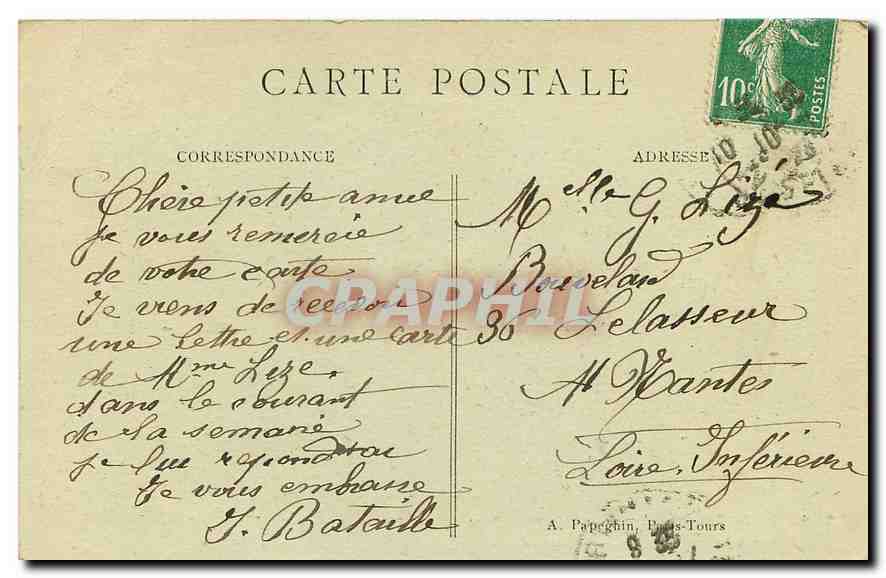 CARTE POSTALE
10c
POSTES
CORRESPONDANCE
ADRESSE
Chère petite amie
je vous remercie
de votre carte
Je viens de recevoir
une lettre et une carte
de Mme Lizé.
dans le courant
de la semaine
je lui repondrai
Je vous embrasse
J. Bataille
Melle G. Lizé
Bouvelard
36 Lelasseur
At Nantes
Loire. Inférieure
A. Papeghin, Paris-Tours
CPAPHIL